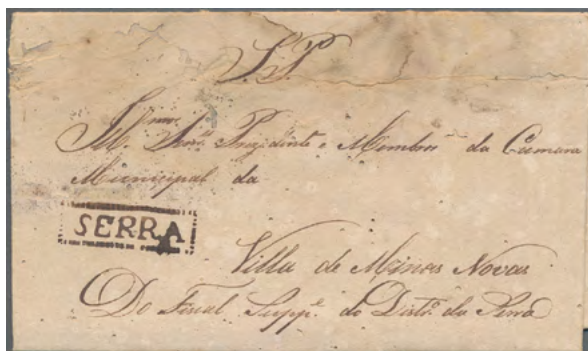 S. P.
Ill.mos Snres. Prezidente e Membros da Camara
Municipal da
SERRA
Villa de Minas Novas
Do Fiscal Suppe. do Distro. da Serra